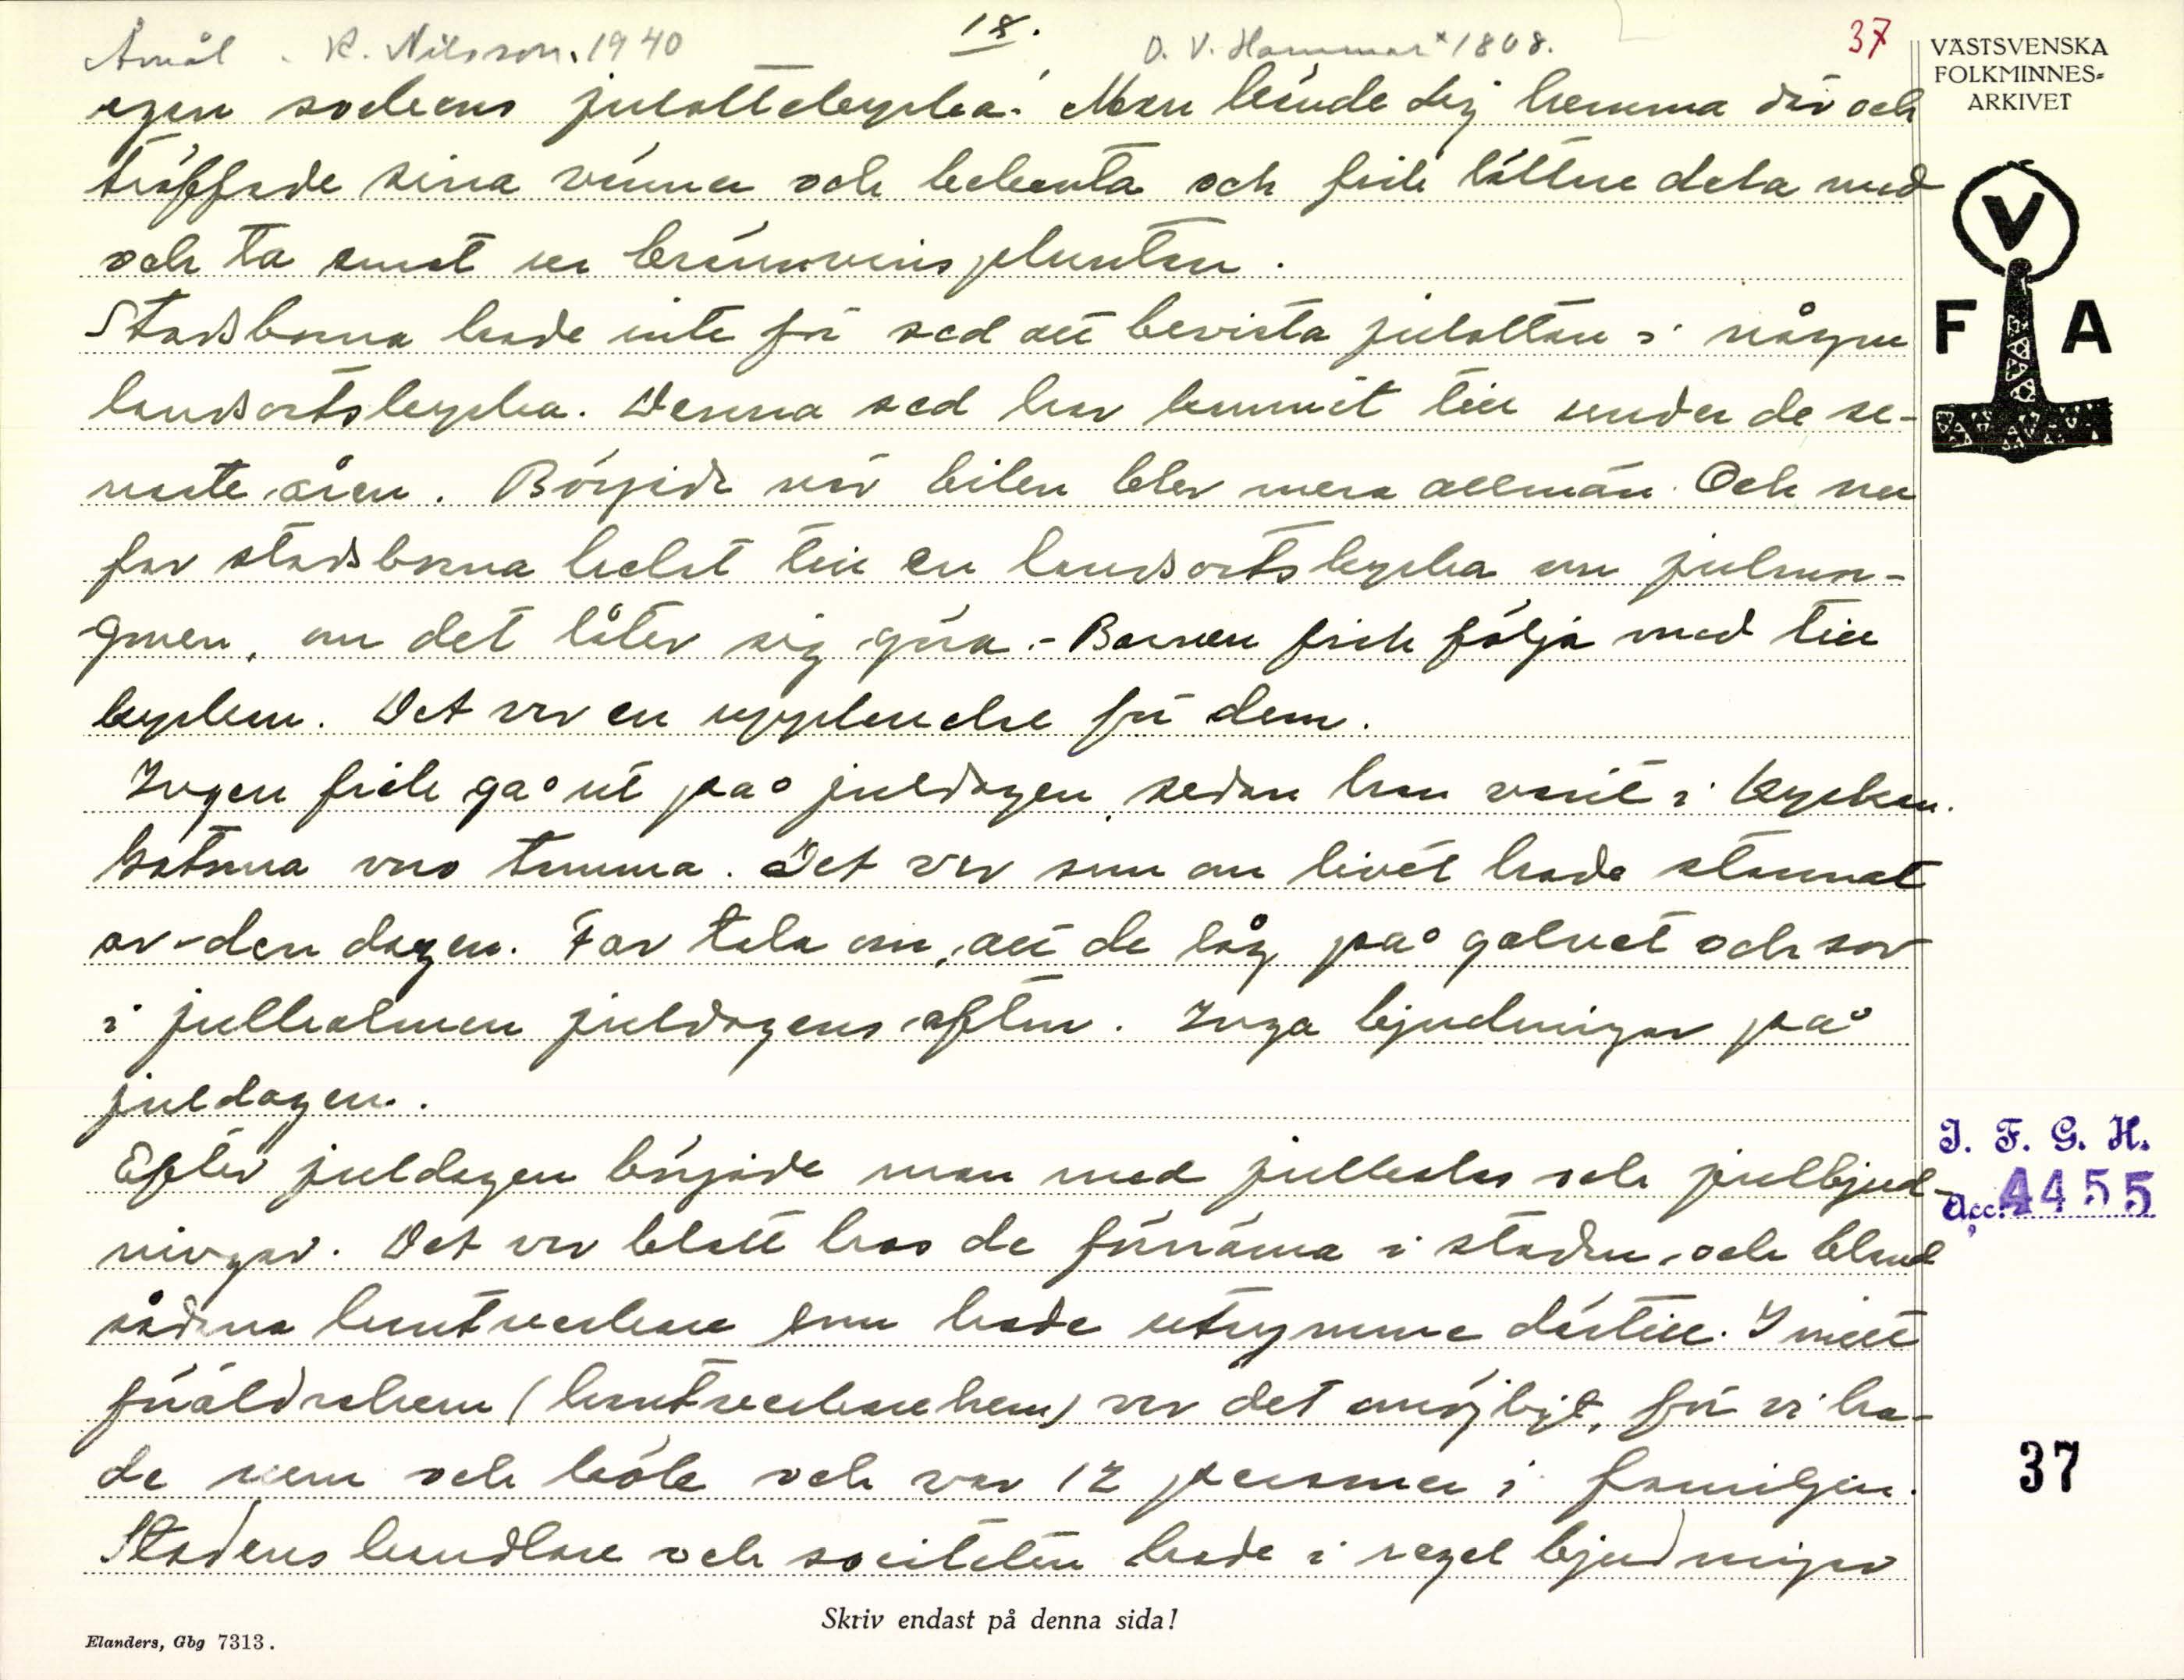 Åmål . K. Nilsson. 1940
18.
O. V. Hammar * 1868.
37
VÄSTSVENSKA
FOLKMINNES-
ARKIVET
V
F A
egen sockens julottekyrka. Man kände sig hemma där och
träffade sina vänner och bekanta och fick lättare dela med
och ta emot ur brännvinsplunten.
Stadsborna hade inte för sed att bevista julottan i någon
landsortskyrka. Denna sed har kommit till under de se-
naste åren. Började när bilen blev mera allmän. Och nu
far stadsborna helst till en landsortskyrka om julmor-
gonen, om det låter sig göra. - Barnen fick följa med till
kyrkan. Det var en upplevelse för dem.
Ingen fick gå ut på juldagen sedan han varit i kyrkan.
Gatorna voro tomma. Det var som om livet hade stannat
av den dagen. Far tala om, att de låg på golvet och sov
i julhalmen juldagens afton. Inga bjudningar på
juldagen.
Efter juldagen började man med julkalas och julbjud-
ningar. Det var blott hos de förnäma i staden och bland
sådana hantverkare som hade utrymme därtill. I mitt
föräldrahem (hantverkarehem) var det omöjligt, för vi ha-
de rum och kök och var 12 personer i familjen.
Stadens handlare och societeten hade i regel bjudningar
I. F. G. H.
Acc. 4455
37
Skriv endast på denna sida!
Elanders, Gbg 7313.